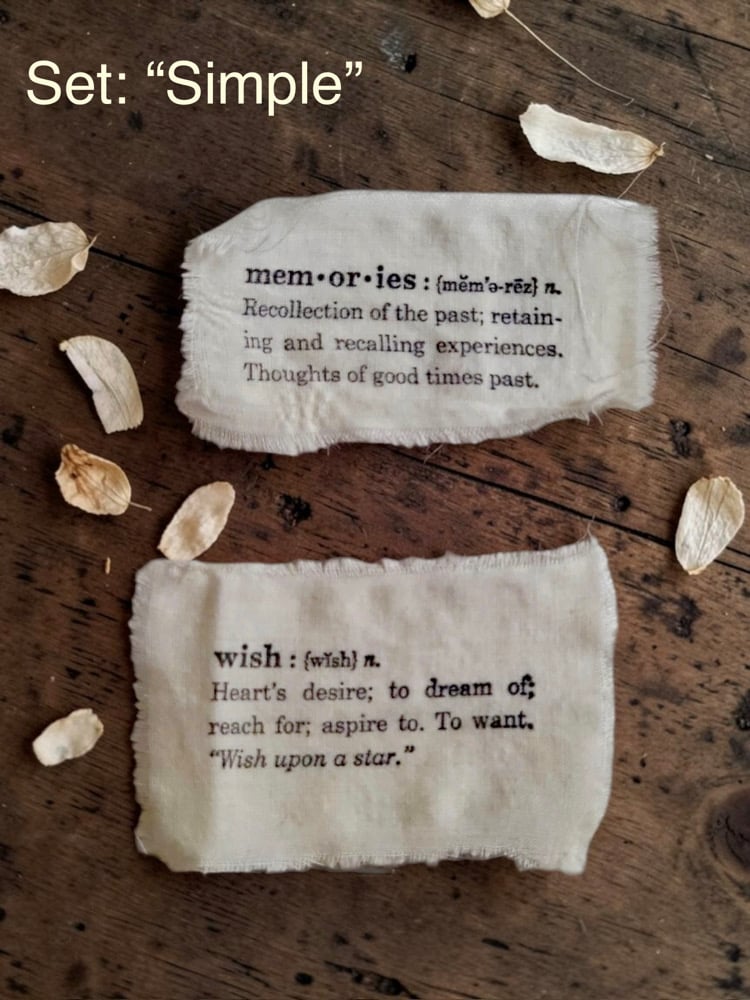 Set: “Simple”
mem•or•ies : {mĕm'ə-rēz} n.
Recollection of the past; retain-
ing and recalling experiences.
Thoughts of good times past.
wish : {wĭsh} n.
Heart's desire; to dream of;
reach for; aspire to. To want.
“Wish upon a star.”